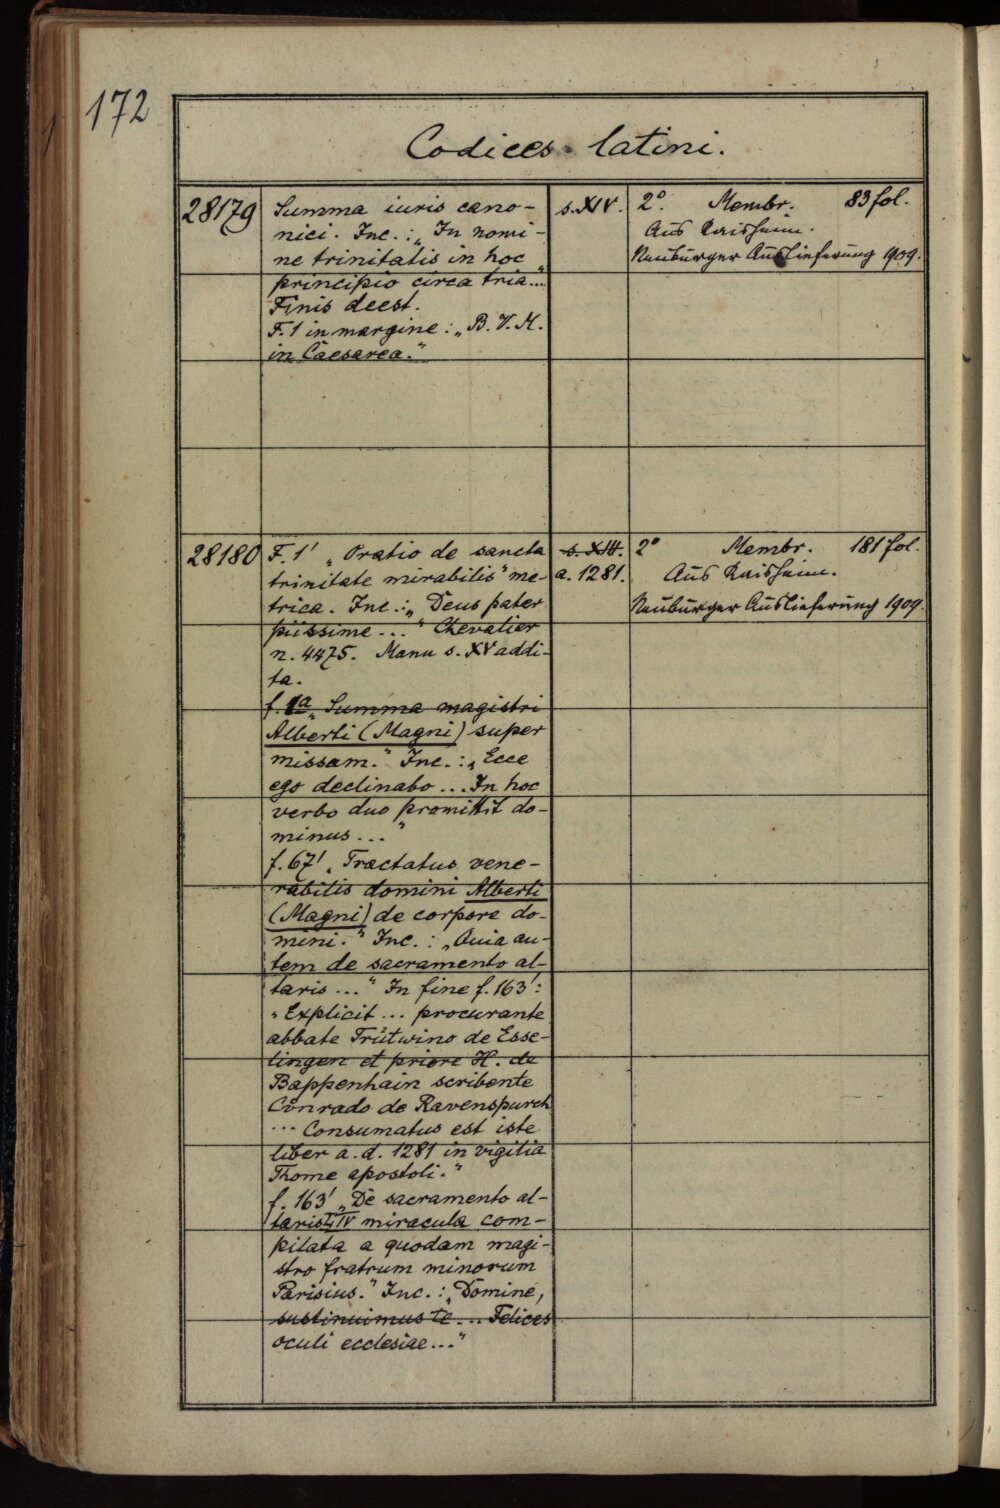 172
Codices latini.
28179
Summa iuris cano-
nici. Inc.: „In nomi-
ne trinitatis in hoc
principio circa tria..."
Finis deest.
F. 1 in margine: „B. V. M.
in Caesarea."
s. XIV.
2°. Membr. 83 fol.
Aus Kaisheim.
Neuburger Auslieferung 1909.
28180
F. 1' „Oratio de sancta
trinitate mirabilis" me-
trica. Inc.: „Deus pater
piissime ..." Chevalier
n. 4475. Manu s. XV addi-
ta.
f. 1a „Summa magistri
Alberti (Magni) super
missam." Inc.: „Ecce
ego declinabo ... In hoc
verbo duo promittit do-
minus ..."
f. 67' „Tractatus vene-
rabilis domini Alberti
(Magni) de corpore do-
mini." Inc.: „Quia au-
tem de sacramento al-
taris ..." In fine f. 163':
„Explicit ... procurante
abbate Trůtwino de Esse-
lingen et priore H. de
Bappenhain scribente
Cůnrado de Ravenspurch
... Consumatus est iste
liber a. d. 1281 in vigilia
Thome apostoli."
f. 163' „De sacramento al-
taris IV miracula com-
pilata a quodam magi-
stro fratrum minorum
Parisius." Inc.: „Domine,
sustinuimus te ... Felices
oculi ecclesiae ..."
s. XIII.
a. 1281.
2° Membr. 181 fol.
Aus Kaisheim.
Neuburger Auslieferung 1909.